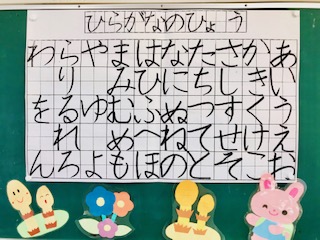 ひらがなのひょう
あいうえお
かきくけこ
さしすせそ
たちつてと
なにぬねの
はひふへほ
まみむめも
やゆよ
らりるれろ
わをん